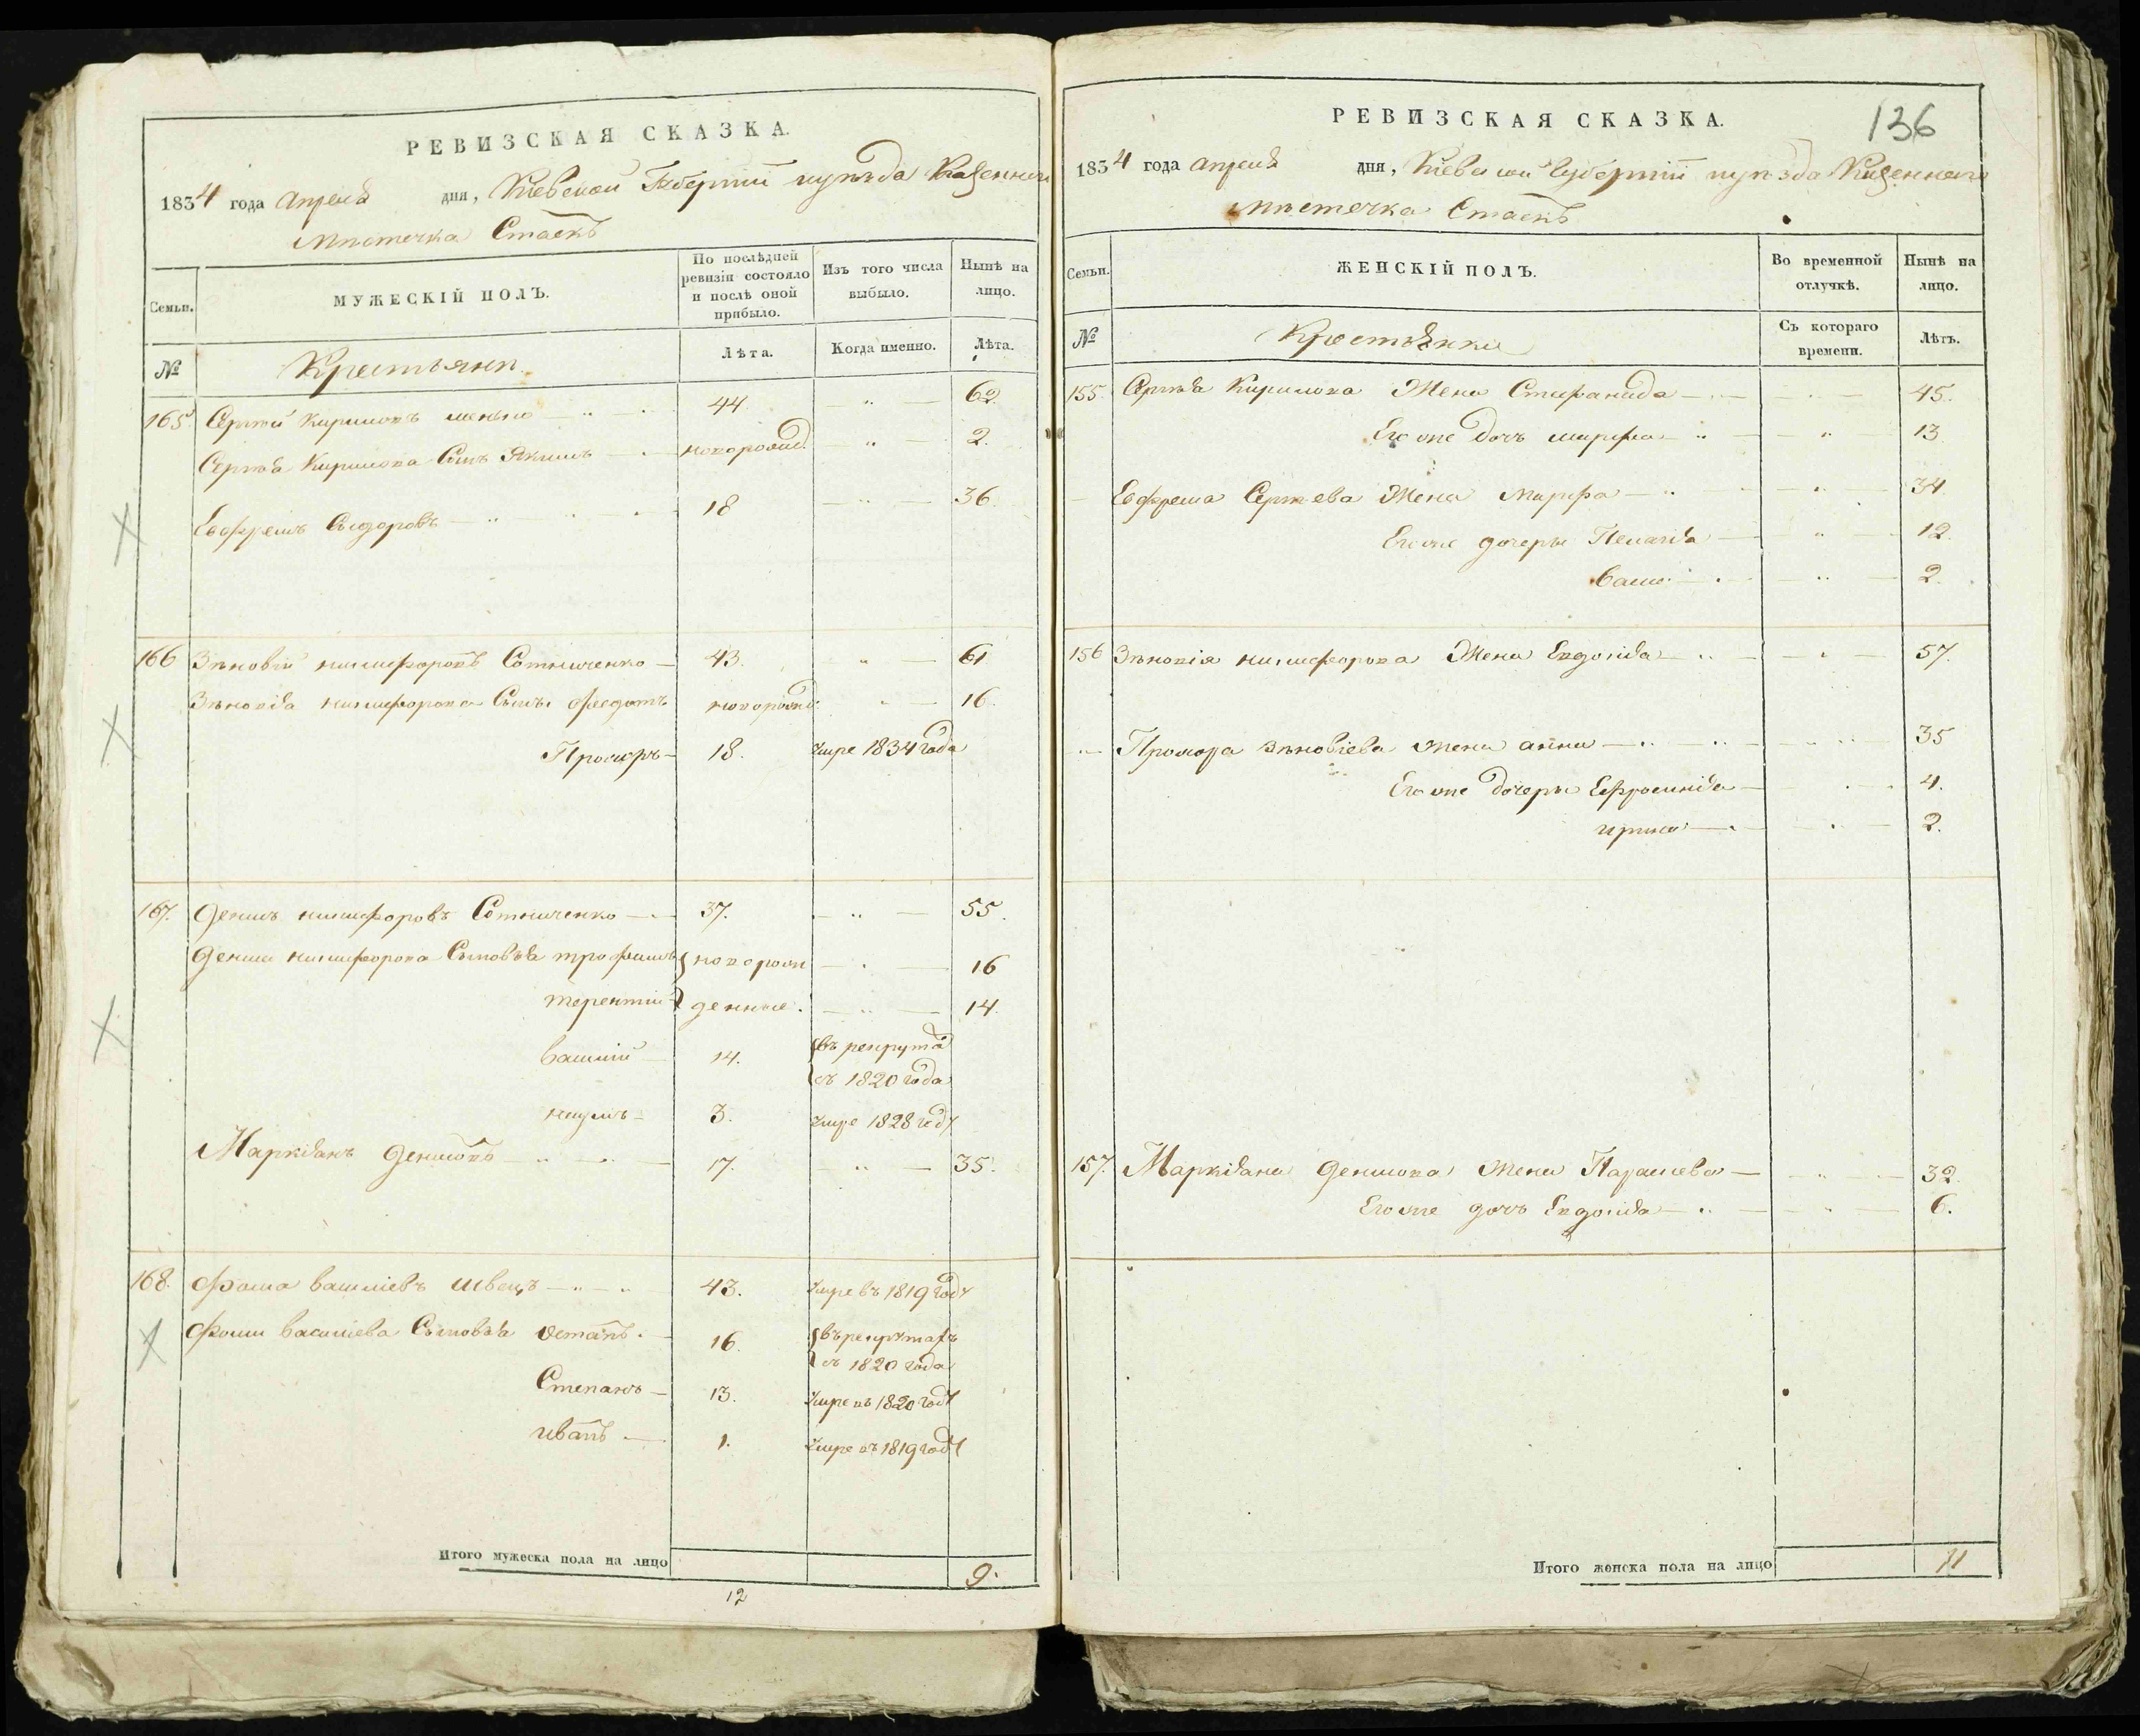 РЕВИЗСКАЯ СКАЗКА.
1834 года апреля дня, Кіевской Губерніи и уѣзда Казеннаго
Мѣстечка Стаекъ
Семьи.
МУЖЕСКІЙ ПОЛЪ.
По послѣдней ревизіи состояло и послѣ оной прибыло.
Изъ того числа выбыло.
Нынѣ на лицо.
№
Крестьяне
Лѣта.
Когда именно.
Лѣта.
165 Сергѣй Кириловъ 44 62
Сергѣя Кирилова Сынъ Якимъ новорожд. 2.
Евфремъ Сыдоровъ 18 36
166 Зѣновій никифоровъ Сотниченко 43. 61
Зѣновія никифорова Сыны федотъ новорожд. 16.
Прохоръ 18. умре 1834 года
167. денисъ никифоровъ Сотниченко 37. 55.
дениса никифорова Сыновья трофимъ новорож 16
терентій денные. 14.
василій 14. въ рекрута
съ 1820 года
наумъ 3. умре 1828 году
Маркіянъ денисовъ 17. 35.
168. фома василіевъ швецъ 43. умре въ 1819 году
фомы василіева Сыновья остапъ 16. въ рекрутахъ
съ 1820 года
Степанъ 13. умре въ 1820 году
иванъ 1. умре въ 1819 году
Итого мужеска пола на лицо 9.
12
136
РЕВИЗСКАЯ СКАЗКА.
1834 года апреля дня, Кіевской Губерніи и уѣзда Казеннаго
Мѣстечка Стаекъ
Семьи.
ЖЕНСКІЙ ПОЛЪ.
Во временной отлучкѣ.
Нынѣ на лицо.
№
Крестьянки
Съ котораго времени.
Лѣтъ.
155. Сергѣя Кирилова Жена Стефанида 45.
Его же дочь марфа 13
Евфрема Сергѣева Жена Марфа 34
Его же дочери Пелагія 12.
2.
156 Зѣновія никифорова Жена Евдокія 57.
Прохора Зѣновіева жена анна 35
Его же дочери Ефросинія 4.
ирина 2.
157. Маркіяна денисова жена Параскева 32.
Его же дочь Евдокія 6.
Итого женска пола на лицо 11